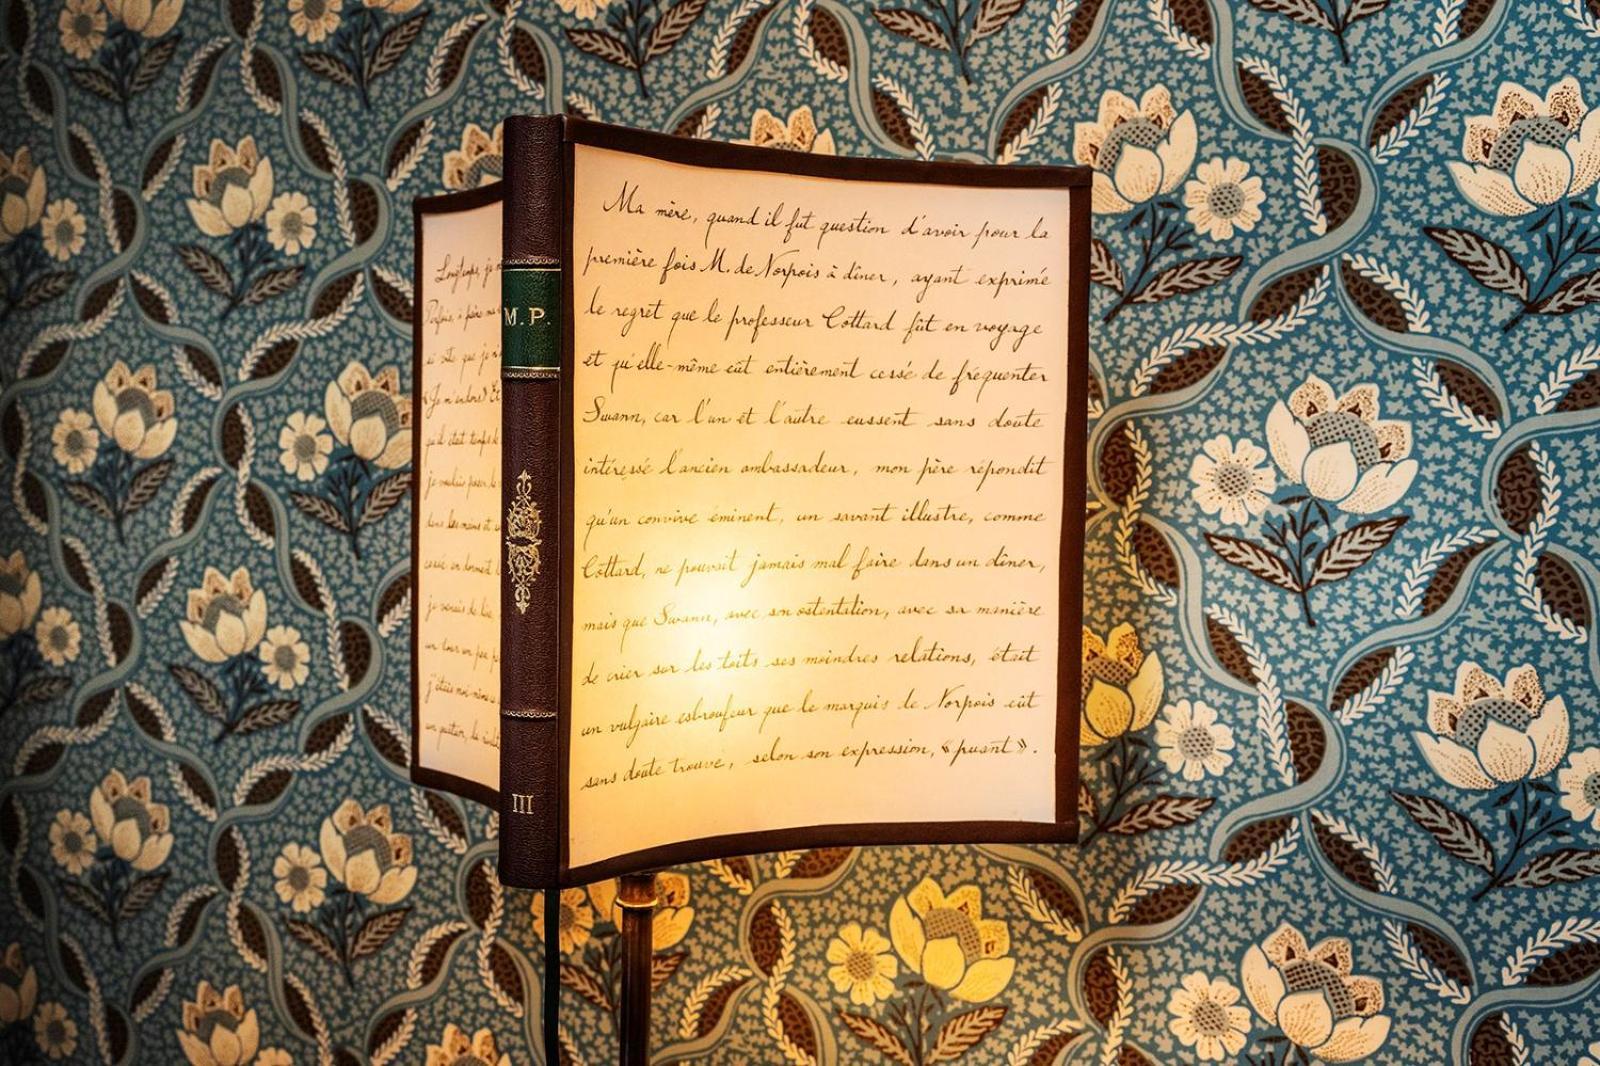 Longtemps, je
Parfois, à peine ma
si vite que je n
«Je m'endors» Et
qu'il était temps de
je voulais poser le
dans les mains et
cessé en dormant
je venais de lire
un tour un peu p
j'étais moi-même
un quatuor, la rivali
M.P.
III
Ma mère, quand il fut question d'avoir pour la
première fois M. de Norpois à dîner, ayant exprimé
le regret que le professeur Cottard fût en voyage
et qu'elle-même eût entièrement cesse de fréquenter
Swann, car l'un et l'autre eussent sans doute
intéressé l'ancien ambassadeur, mon père répondit
qu'un convive éminent, un savant illustre, comme
Cottard, ne pouvait jamais mal faire dans un dîner,
mais que Swann, avec son ostentation, avec sa manière
de crier sur les toits ses moindres relations, était
un vulgaire esbroufeur que le marquis de Norpois eût
sans doute trouvé, selon son expression, «puant».